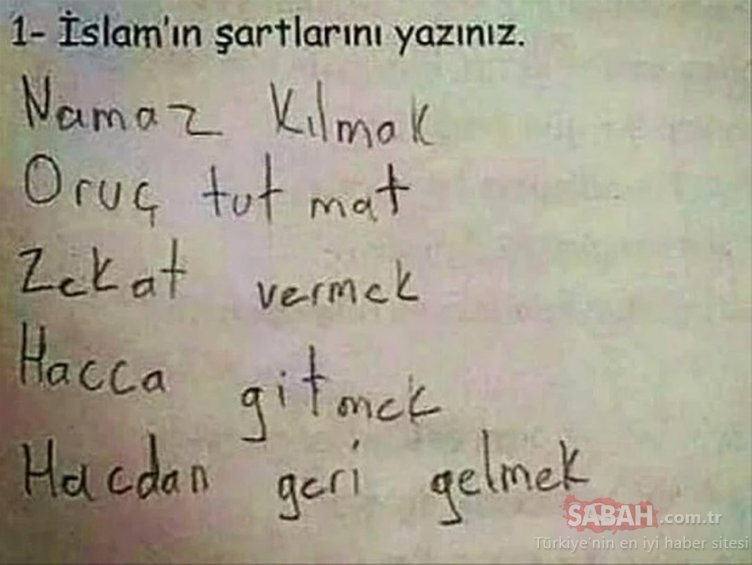 1- İslam'ın şartlarını yazınız.
Namaz Kılmak
Oruç tut mat
Zekat vermek
Hacca gitmek
Hacdan geri gelmek
SABAH.com.tr
Türkiye'nin en iyi haber sitesi